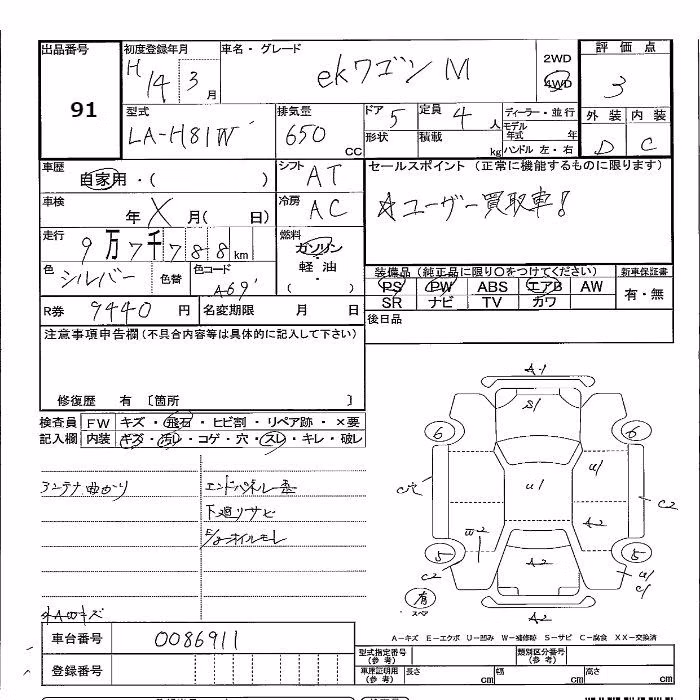 出品番号
91
初度登録年月
H 14 3 月
車名・グレード
ekワゴン M
2WD
4WD
評価点
3
型式
LA-H81W
排気量
650 CC
ドア 5
定員 4 人
形状
積載 kg
ディーラー・並行
モデル年式 年
ハンドル 左・右
外装 内装
D C
車歴
自家用・( )
シフト
AT
セールスポイント (正常に機能するものに限ります)
☆ユーザー買取車!
車検
年 X 月( 日)
冷房
AC
走行
9万7千788km
燃料
ガソリン
軽・油
・( )
色
シルバー
色替
色コード
A69
装備品 (純正品に限り○をつけてください)
PS PW ABS エアB AW
SR ナビ TV カワ
新車保証書
有・無
R券 9440 円
名変期限 月 日
後日品
注意事項申告欄 (不具合内容等は具体的に記入して下さい)
修復歴 有 〔箇所 〕
検査員記入欄
FW キズ・飛石・ヒビ割・リペア跡・×要
内装 キズ・汚レ・コゲ・穴・スレ・キレ・破レ
アンテナ曲がり
エンドパネル歪
下廻リサビ
E/gオイルモレ
外Aのキズ
A-1
S/
6
6
C穴
U1
U1
C2
A2
5
5
C2
A2
U1
C1
有
スペア
A2
A-キズ E-エクボ U-凹み W-補修跡 S-サビ C-腐食 XX-交換済
車台番号
0086911
登録番号
型式指定番号 (参考)
類別区分番号 (参考)
車庫証明用 (参考)
長さ cm
幅 cm
高さ cm